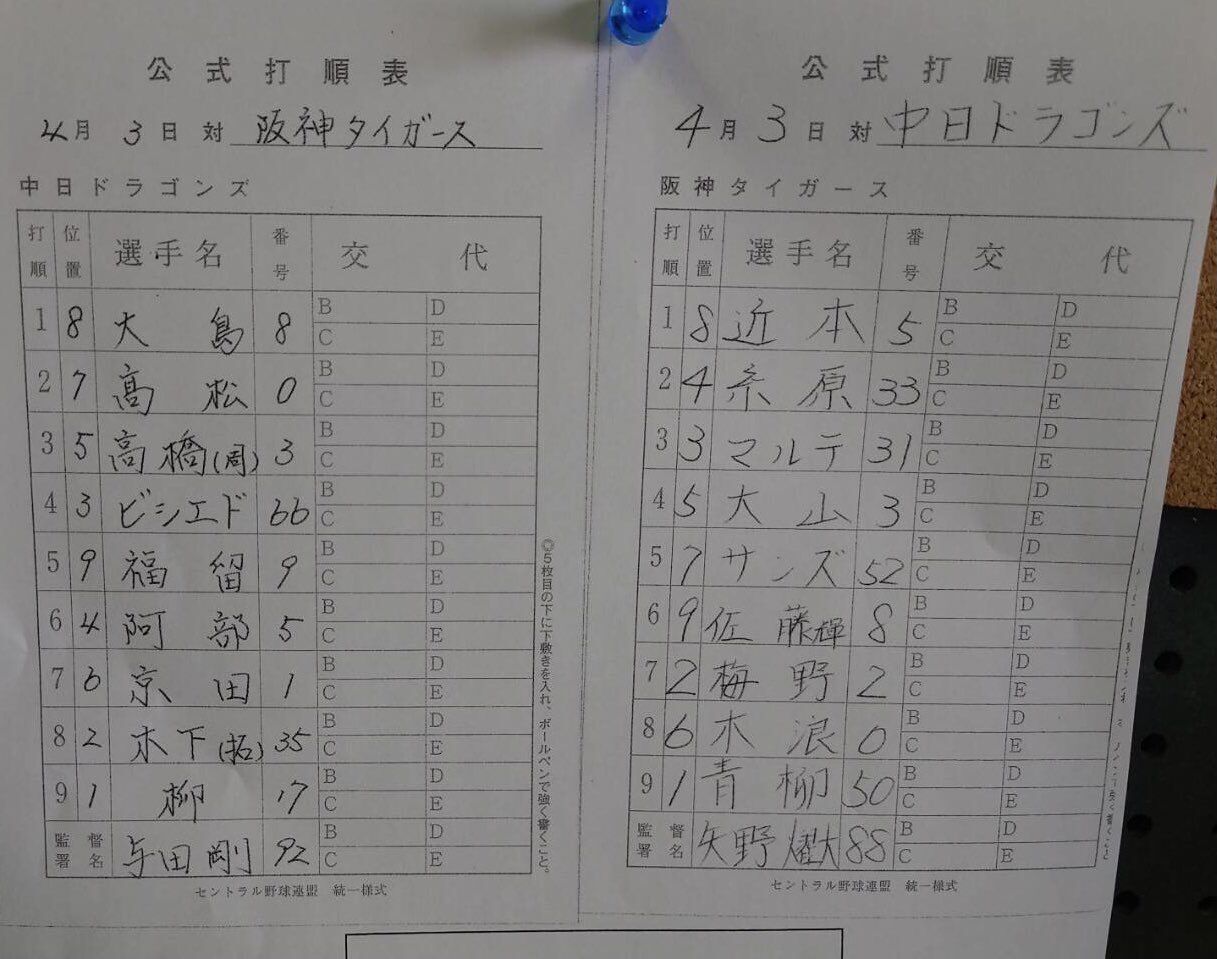 公式打順表
4月3日対 阪神タイガース
中日ドラゴンズ
打順 位置 選手名 番号 交代
1 8 大島 8 B D C E
2 7 髙松 0 B D C E
3 5 高橋(周) 3 B D C E
4 3 ビシエド 66 B D C E
5 9 福留 9 B D C E
6 4 阿部 5 B D C E
7 6 京田 1 B D C E
8 2 木下(拓) 35 B D C E
9 1 柳 17 B D C E
監督署名 与田剛 92 B D C E
セントラル野球連盟 統一様式
◎5枚目の下に下敷きを入れ、ボールペンで強く書くこと。
公式打順表
4月3日対 中日ドラゴンズ
阪神タイガース
打順 位置 選手名 番号 交代
1 8 近本 5 B D C E
2 4 糸原 33 B D C E
3 3 マルテ 31 B D C E
4 5 大山 3 B D C E
5 7 サンズ 52 B D C E
6 9 佐藤輝 8 B D C E
7 2 梅野 2 B D C E
8 6 木浪 0 B D C E
9 1 青柳 50 B D C E
監督署名 矢野燿大 88 B D C E
セントラル野球連盟 統一様式